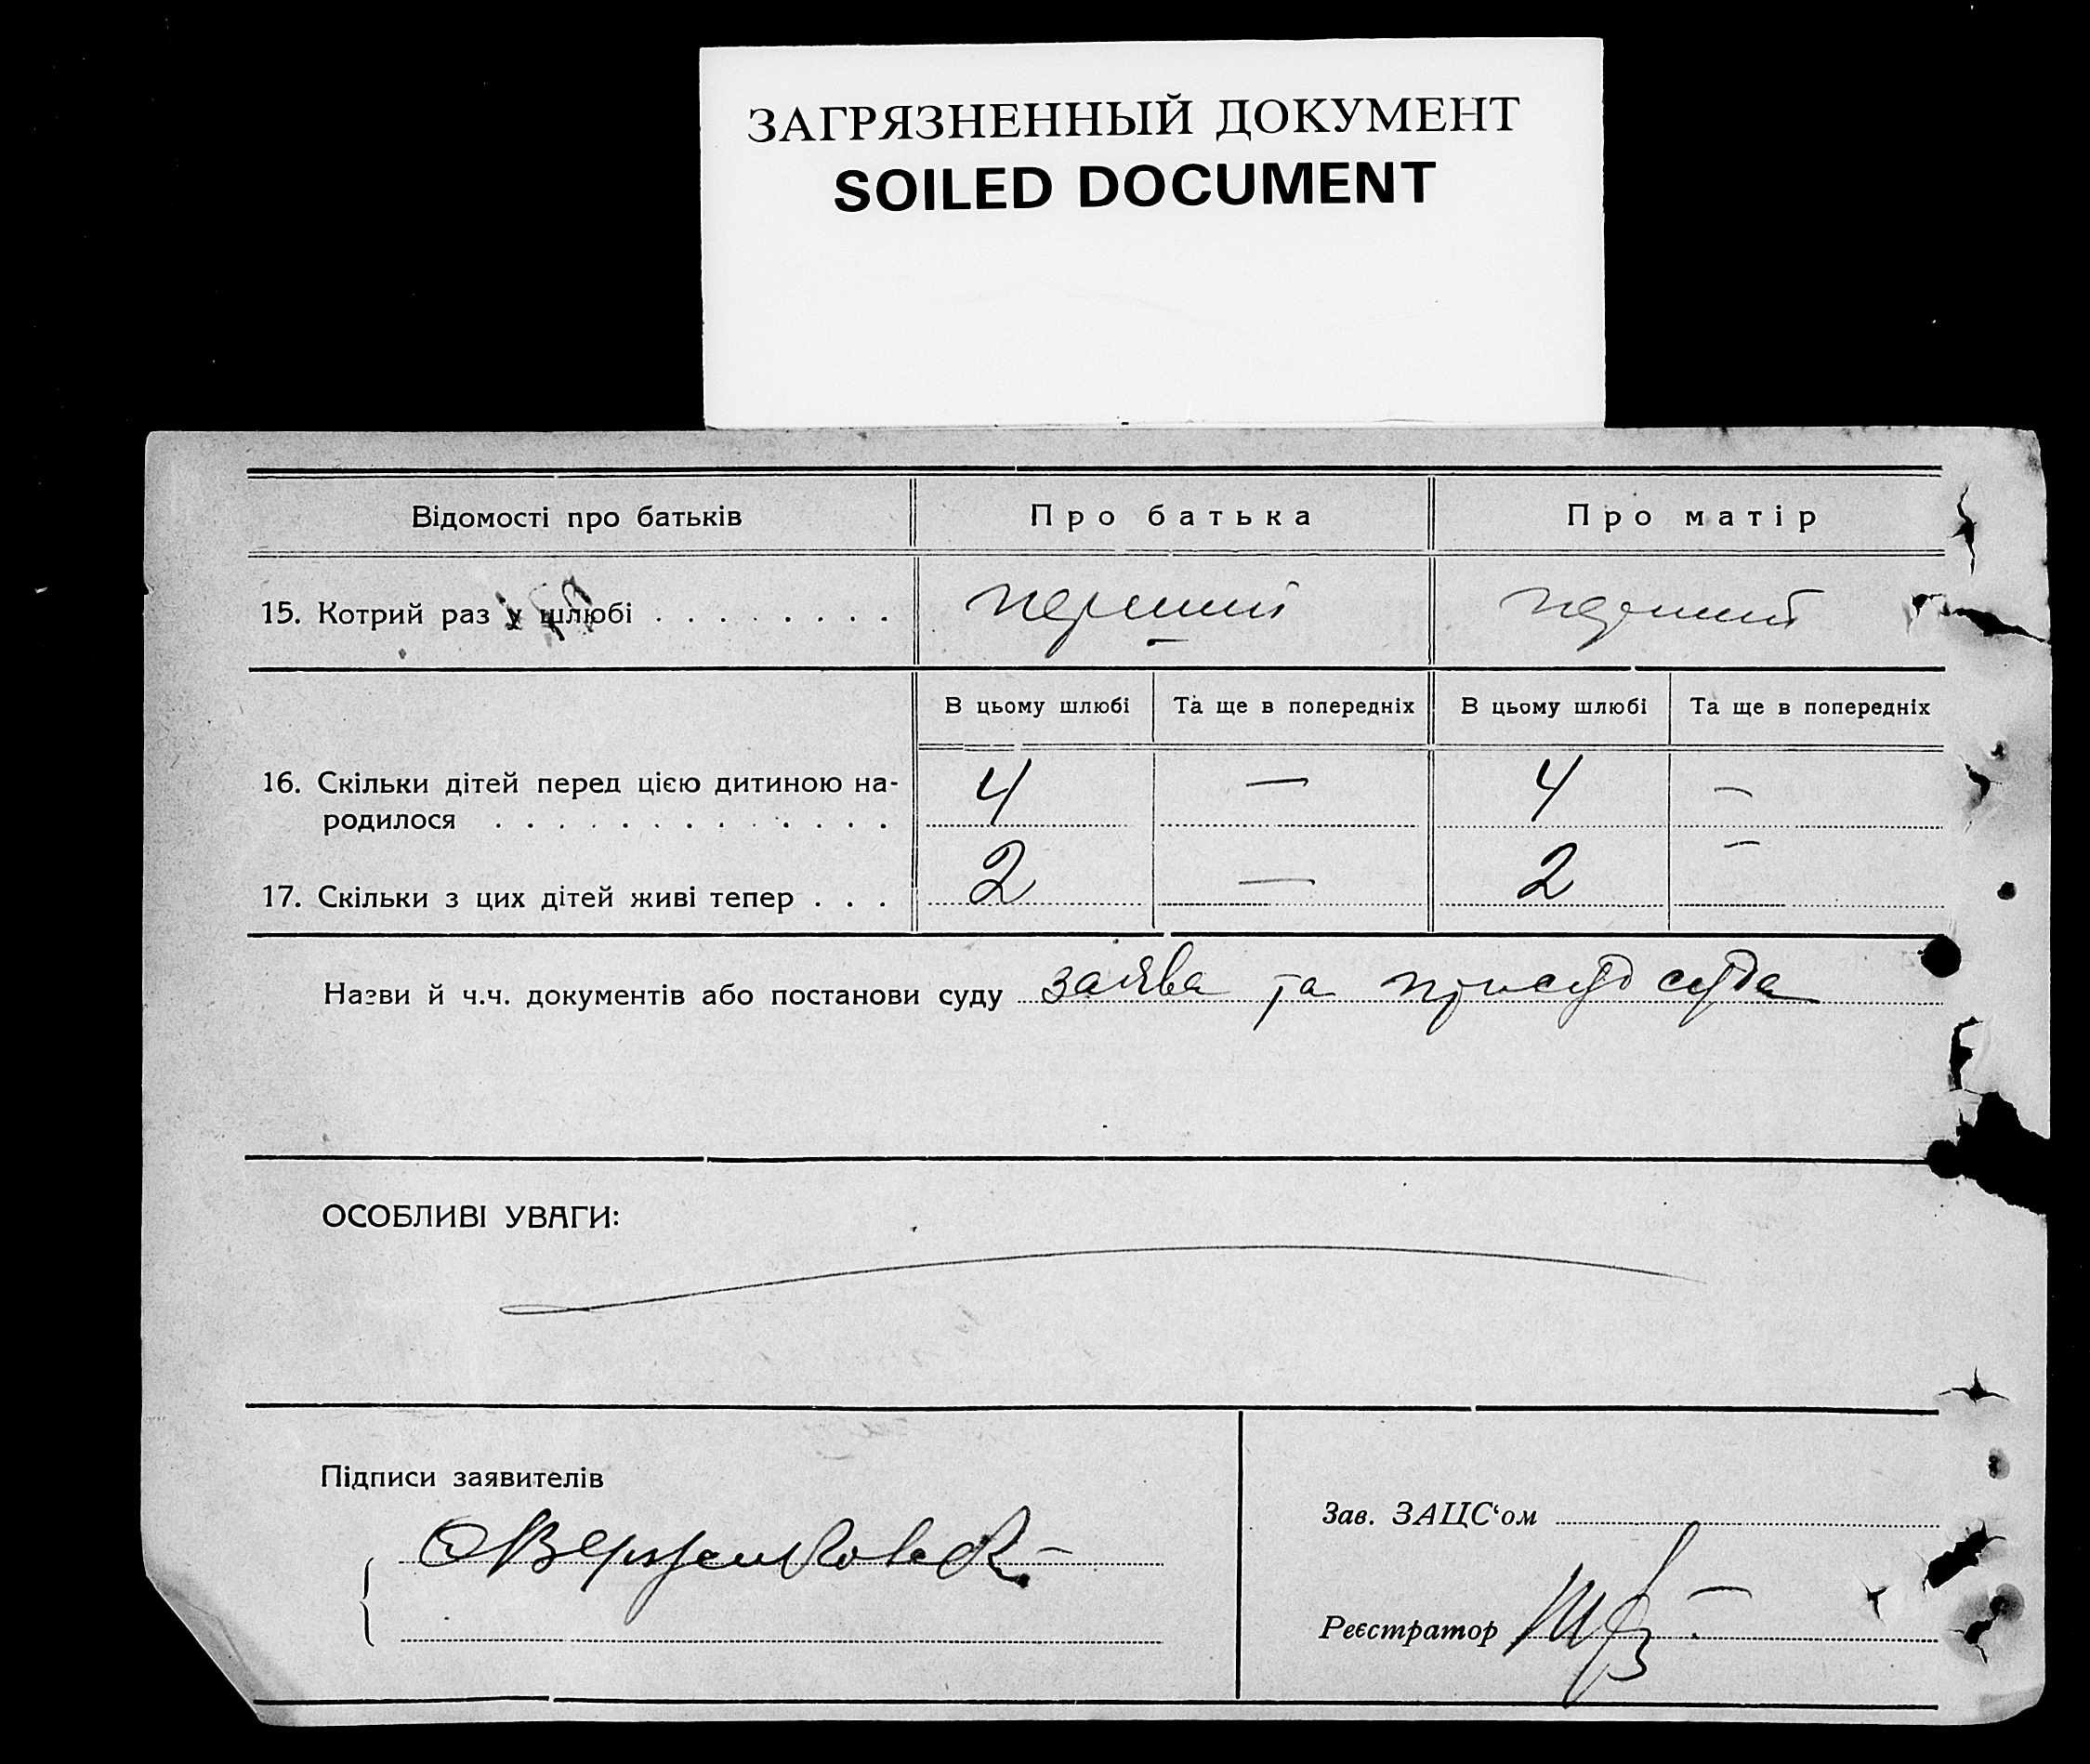 ЗАГРЯЗНЕННЫЙ ДОКУМЕНТ
SOILED DOCUMENT
Відомості про батьків
Про батька
Про матір
15. Котрий раз у шлюбі . . . . . . . .
перший
перший
В цьому шлюбі
Та ще в попередніх
В цьому шлюбі
Та ще в попередніх
16. Скільки дітей перед цією дитиною на-
родилося . . . . . . . . . . . . . .
4 — 4 —
17. Скільки з цих дітей живі тепер . . .
2 — 2 —
Назви й ч.ч. документів або постанови суду заява та присуд суда
ОСОБЛИВІ УВАГИ:
Підписи заявителів
Зав. ЗАЦС‘ом
Реєстратор